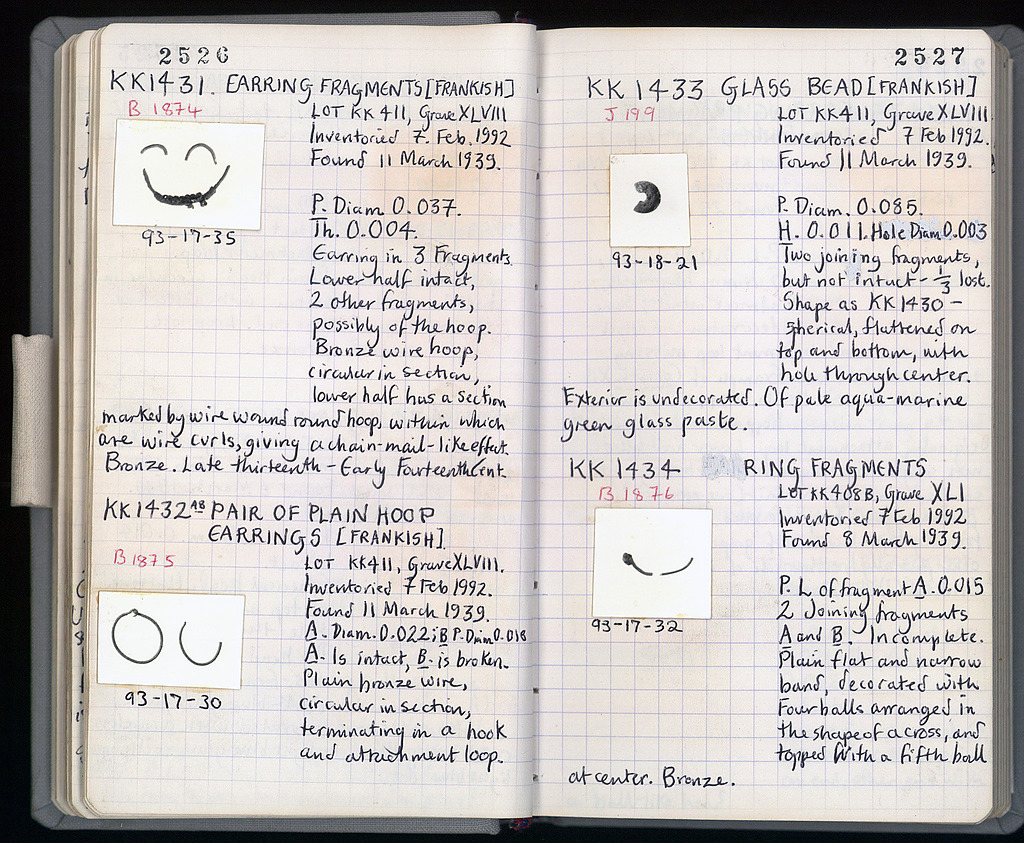 2526
KK1431. EARRING FRAGMENTS [FRANKISH]
B 1874
LOT KK 411, Grave XLVIII
Inventoried 7. Feb. 1992
Found 11 March 1939.
93-17-35
P. Diam 0.037.
Th. 0.004.
Earring in 3 Fragments.
Lower half intact,
2 other fragments,
possibly of the hoop.
Bronze wire hoop,
circular in section,
lower half has a section
marked by wire wound round hoop within which
are wire curls, giving a chain-mail-like effect.
Bronze. Late thirteenth - Early Fourteenth Cent.
KK1432 AB PAIR OF PLAIN HOOP
EARRINGS [FRANKISH].
B 1875
LOT KK411, Grave XLVIII.
Inventoried 7 Feb 1992.
Found 11 March 1939.
A. Diam. 0.022; B P. Diam 0.018
A. Is intact, B. is broken.
Plain bronze wire,
circular in section,
terminating in a hook
and attachment loop.
93-17-30
2527
KK 1433 GLASS BEAD [FRANKISH]
J 199
LOT KK411, Grave XLVIII
Inventoried 7 Feb 1992.
Found 11 March 1939.
93-18-21
P. Diam. 0.085.
H. 0.011. Hole Diam 0.003
Two joining fragments,
but not intact - 1/3 lost.
Shape as KK 1430 -
spherical, flattened on
top and bottom, with
hole through center.
Exterior is undecorated. Of pale aqua-marine
green glass paste.
KK 1434 RING FRAGMENTS
B 1876
LOT KK408B, Grave XLI
Inventoried 7 Feb 1992
Found 8 March 1939.
93-17-32
P. L of fragment A. 0.015
2 Joining fragments
A and B. Incomplete.
Plain flat and narrow
band, decorated with
Four balls arranged in
the shape of a cross, and
topped with a fifth ball
at center. Bronze.